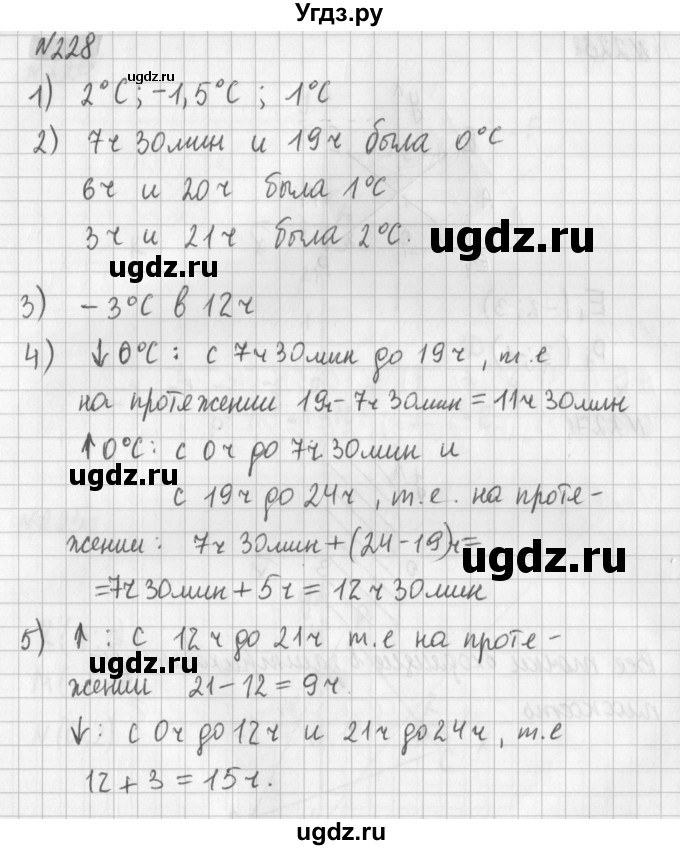 Угдз.ру
№228
ugdz.ru
1) 2°С; -1,5°С ; 1°С
2) 7ч 30мин и 19ч была 0°С
6ч и 20ч была 1°С
3ч и 21ч была 2°С.
ugdz.ru
ugdz.ru
3) -3°С в 12ч
4) ↓0°С: с 7ч 30мин до 19ч, т.е
на протяжении 19ч-7ч 30мин=11ч 30мин
↑0°С: с 0ч до 7ч 30мин и
ugdz.ru
с 19ч до 24ч, т.е. на протя-
ugdz.ru
жении: 7ч 30мин+(24-19)ч=
=7ч 30мин+5ч=12ч 30мин
5) ↑: с 12ч до 21ч т.е на протя-
ugdz.ru
жении 21-12=9ч.
ugdz.ru
↓: с 0ч до 12ч и 21ч до 24ч, т.е
12+3=15ч.
ugdz.ru